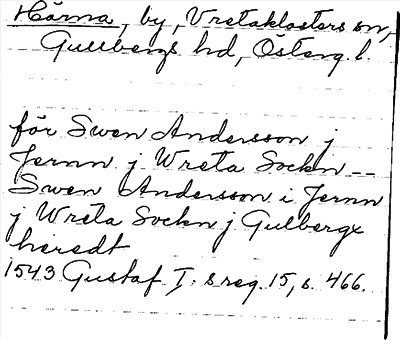 Härna, by, Vretaklosters sn,
Gullbergs hd, Österg. l.
för Swen Andersson j
Jernn j Wreta Sockn --
Swen Andersson i Jernn
j Wreta Sockn j Gulbergx
heredt
1543 Gustaf I: s reg. 15, s. 466.